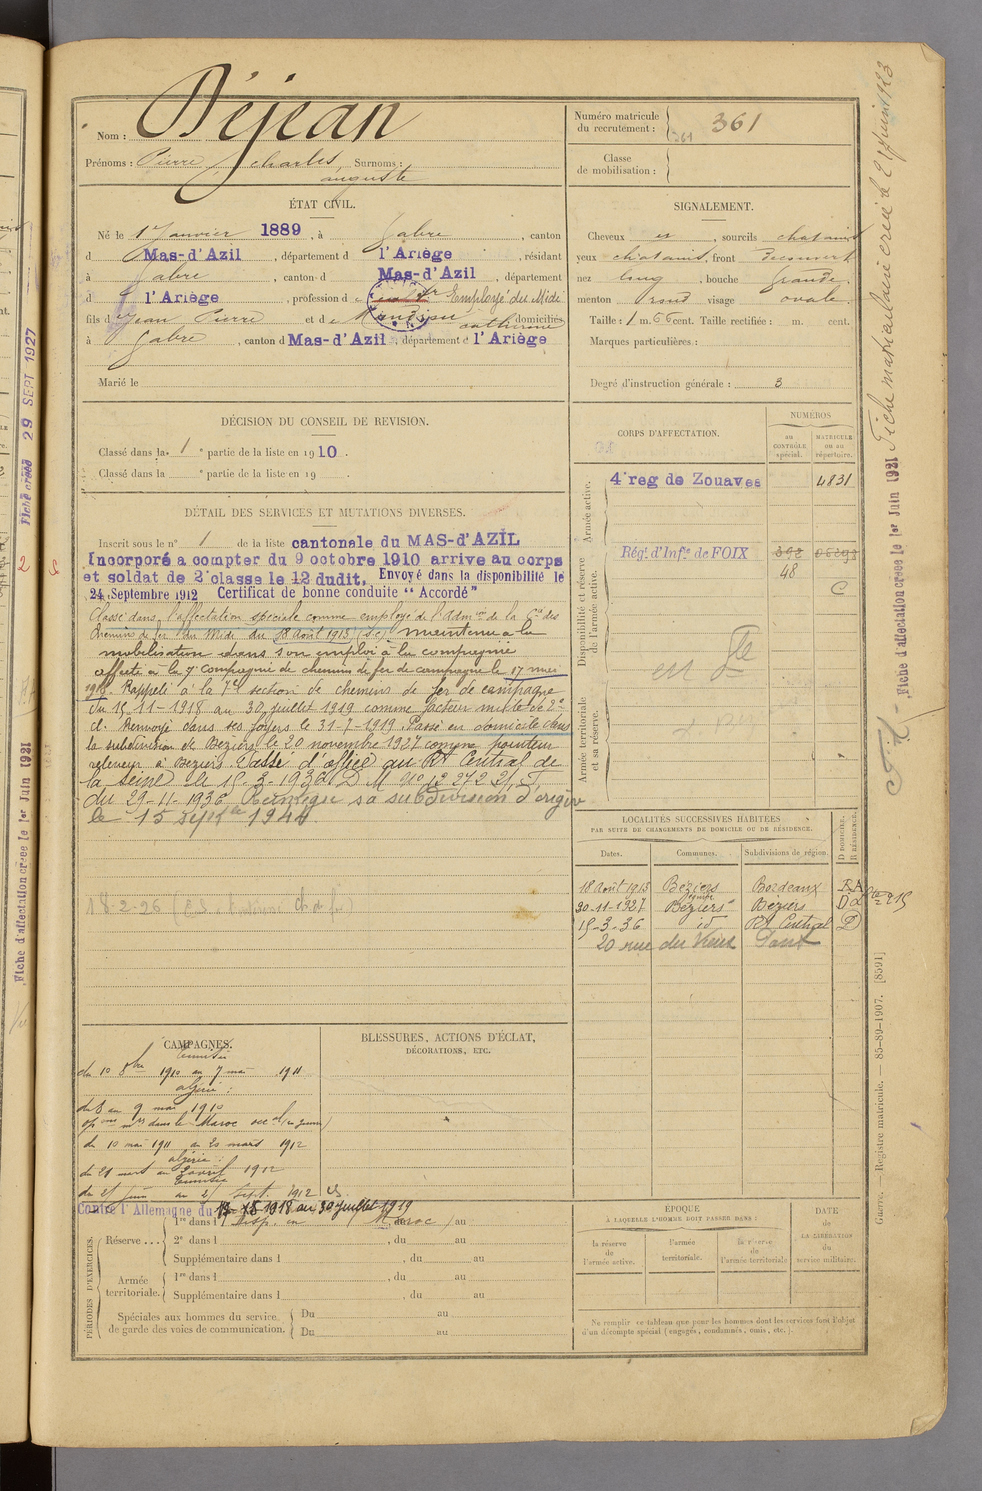 Nom : Déjean
Prénoms : Pierre Charles Surnoms :
auguste
ÉTAT CIVIL.
Né le 1er Janvier 1889, à Gabre, canton
d Mas-d'Azil, département d l'Ariège, résidant
à Gabre, canton d Mas-d'Azil, département
d l'Ariège, profession d Employé du Midi
fils d Jean Pierre et de catherine domiciliés
à Gabre, canton d Mas-d'Azil, département d l'Ariège
Marié le
DÉCISION DU CONSEIL DE REVISION.
Classé dans la 1e partie de la liste en 1910.
Classé dans la e partie de la liste en 19 .
DÉTAIL DES SERVICES ET MUTATIONS DIVERSES.
Inscrit sous le n° 1 de la liste cantonale du MAS-d'AZIL
Incorporé a compter du 9 octobre 1910 arrive au corps
et soldat de 2e classe le 12 dudit. Envoyé dans la disponibilité le
24 Septembre 1912 Certificat de bonne conduite "Accordé"
Classé dans l'affectation spéciale comme employé de l'Admon de la Cie des
Chemins de fer du Midi du 18 août 1913 (S.C) maintenu à la
mobilisation dans son emploi à la compagnie
affecté à la 7e compagnie de chemins de fer de campagne le 17 mai
1918. Rappelé à la 7e section de chemins de fer de campagne
du 15-11-1918 au 30 juillet 1919 comme facteur mixte de 2e
cl. Renvoyé dans ses foyers le 31-7-1919. Passé en domicile dans
la subdivision de Béziers le 20 novembre 1927 comme pointeur
releveur à Béziers. Passé d'office au Rt Central de
la Seine le 15-3-1936 D M
du 29-11-1936 Réintègre sa subdivision d'origine
le 15 1944.
18-2-26
CAMPAGNES.
Tunisie
du 10 8bre 1910 au 7 mai 1911
algérie :
du 8 au 9 mai 1910
opons mres dans le Maroc occal (en guerre)
du 10 mai 1911 au 20 mars 1912
algérie :
du 21 mars au 2 avril 1912
Tunisie
Sept. 1912
Contre l'Allemagne du 1918 au 30 juillet 1919
BLESSURES, ACTIONS D'ÉCLAT,
DÉCORATIONS, ETC.
PÉRIODES D'EXERCICES.
Réserve ... 1re dans l Disp. en Maroc au
2e dans l , du au
Supplémentaire dans l , du au
Armée territoriale. 1re dans l , du au
Supplémentaire dans l , du au
Spéciales aux hommes du service Du au
de garde des voies de communication. Du au
Numéro matricule
du recrutement : 361
361
Classe
de mobilisation :
SIGNALEMENT.
Cheveux et, sourcils chatains
yeux chatains, front découvert
nez long, bouche grande
menton rond visage ovale.
Taille : 1 m. 66 cent. Taille rectifiée : m. cent.
Marques particulières :
Degré d'instruction générale : 3
CORPS D'AFFECTATION.
NUMÉROS
au
CONTRÔLE
spécial.
MATRICULE
ou au
répertoire.
Armée active.
4e reg de Zouaves 4831
Disponibilité et réserve
de l'armée active.
Régt d'Infie de FOIX
48
C
Armée territoriale
et sa réserve.
LOCALITÉS SUCCESSIVES HABITÉES
PAR SUITE DE CHANGEMENTS DE DOMICILE OU DE RÉSIDENCE.
D DOMICILE.
R RÉSIDENCE.
Dates. Communes. Subdivisions de région.
18 août 1913 Béziers Bordeaux
30-11-1927 Béziers Béziers D
15-3-36 id Rt Central D
20 rue du Vieux Pont
ÉPOQUE
À LAQUELLE L'HOMME DOIT PASSER DANS :
la réserve
de
l'armée active.
l'armée
territoriale.
la réserve
de
l'armée territoriale
DATE
de
LA LIBÉRATION
du
service militaire.
Ne remplir ce tableau que pour les hommes dont les services font l'objet
d'un décompte spécial (engagés, condamnés, omis, etc.).
Fiche d'affectation créée le 1er Juin 1921
Guerre. — Registre matricule. — 85-89-1907. [8591]
Fiche créée 29 SEPT 1927
Fiche d'affectation créée le 1er Juin 1921